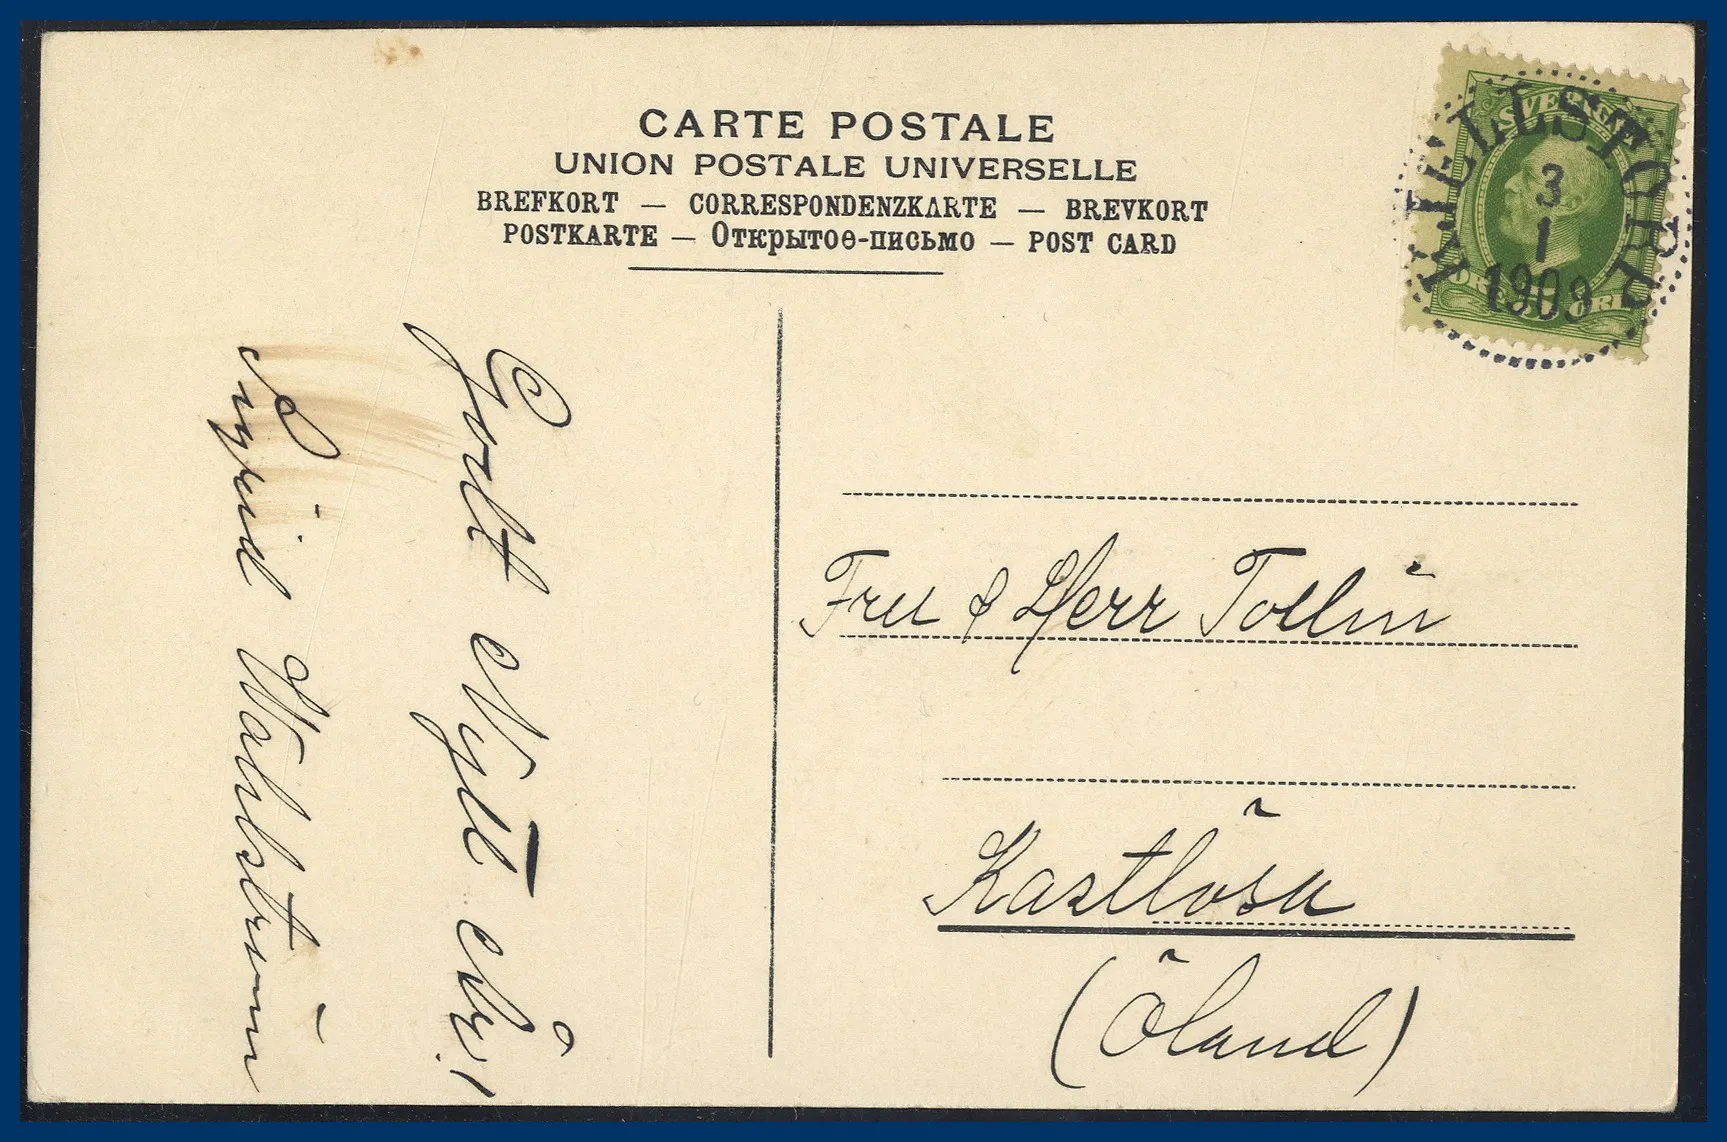 CARTE POSTALE
UNION POSTALE UNIVERSELLE
BREFKORT — CORRESPONDENZKARTE — BREVKORT
POSTKARTE — Открытое-письмо — POST CARD
SVERIGE
3
1
1909
Godt Nytt År!
Sigrid Wahlström
Fru & Herr Tollin
Kastlösa
(Öland)